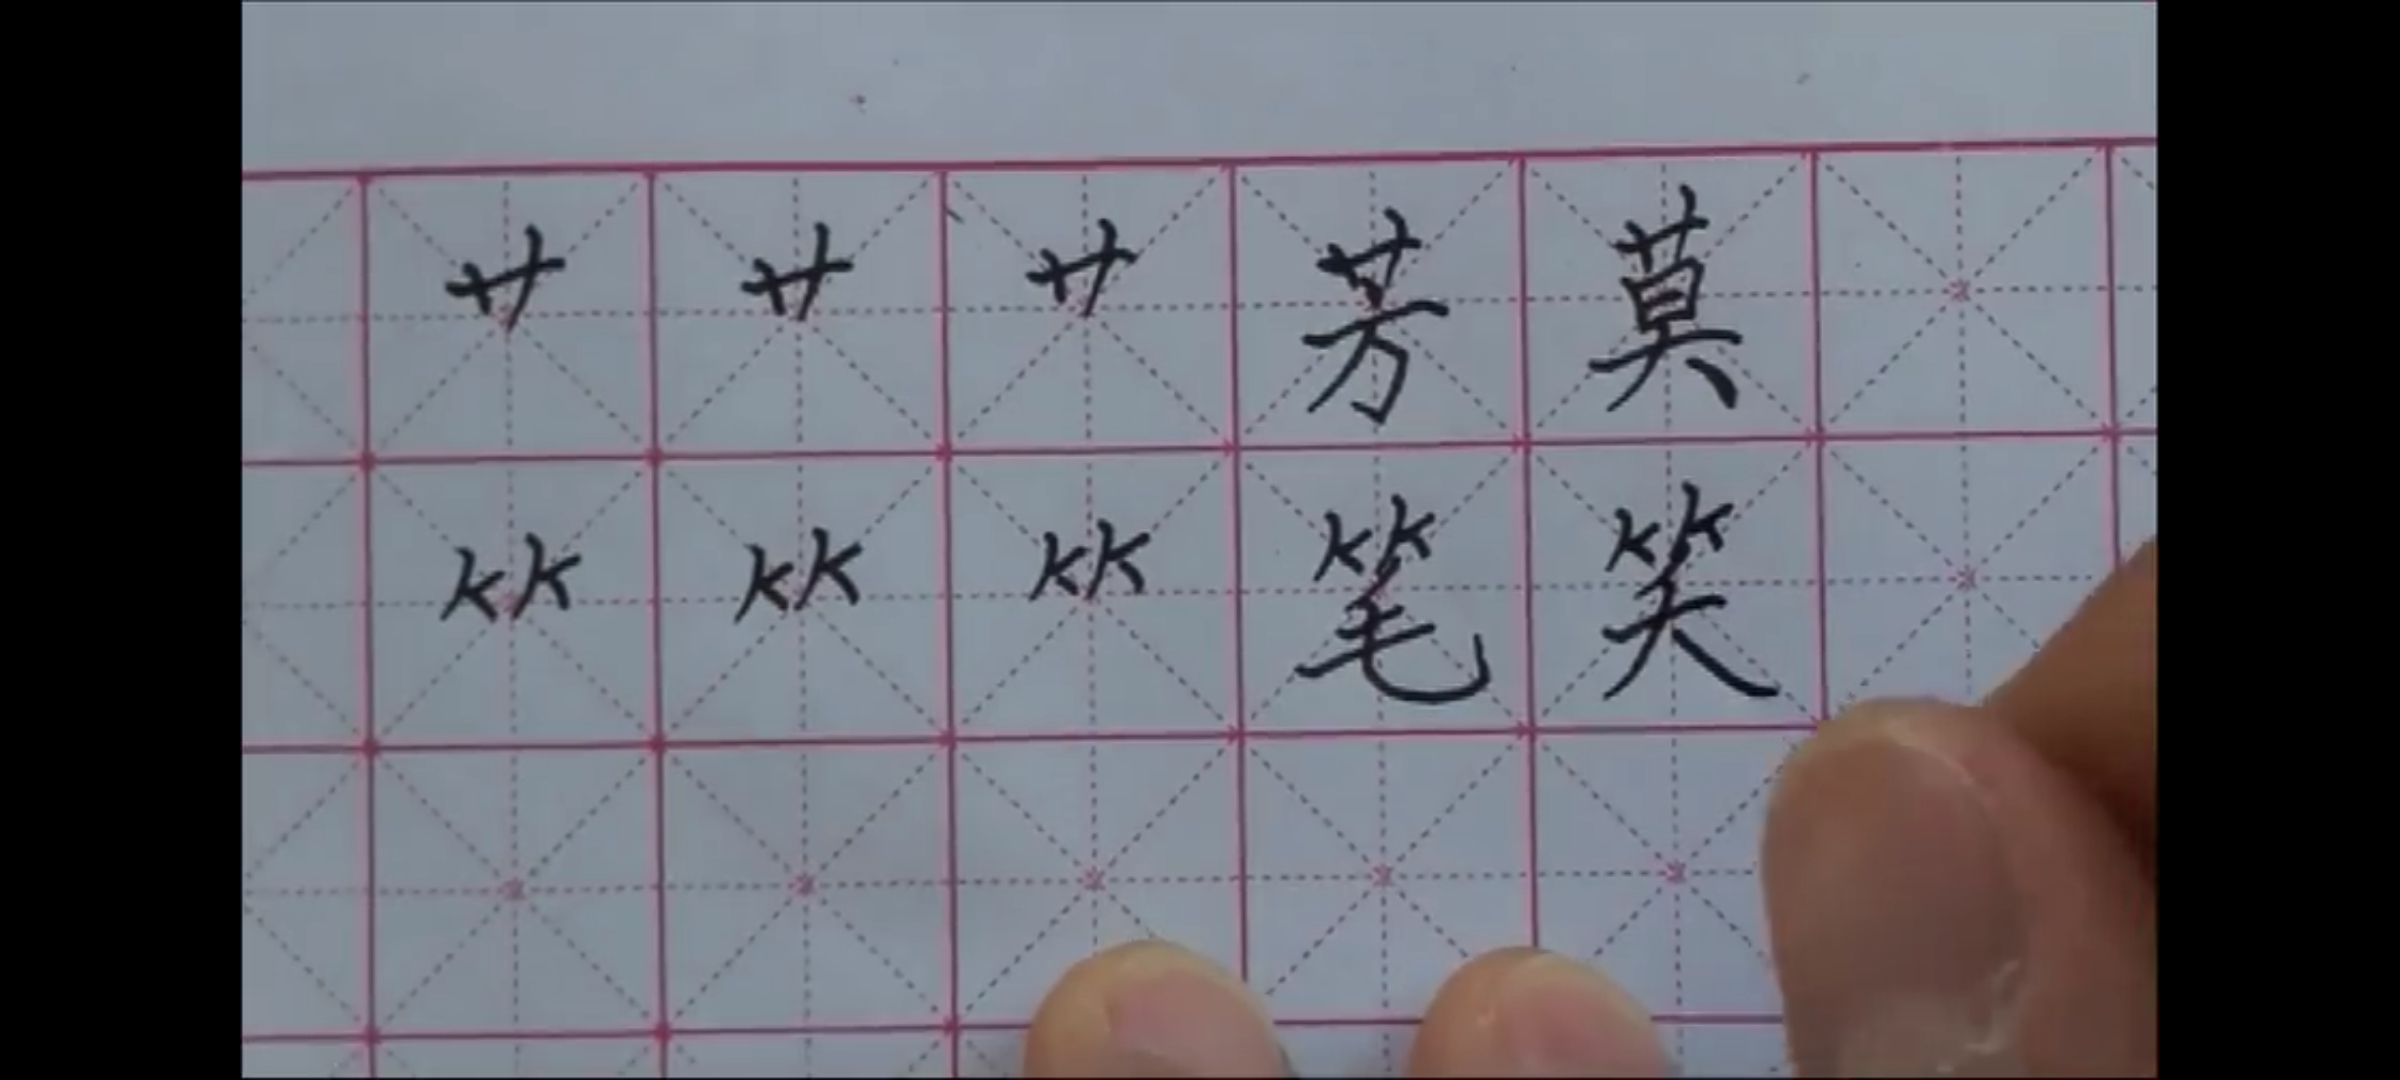 艹 艹 艹 芳 莫
⺮ ⺮ ⺮ 笔 笑